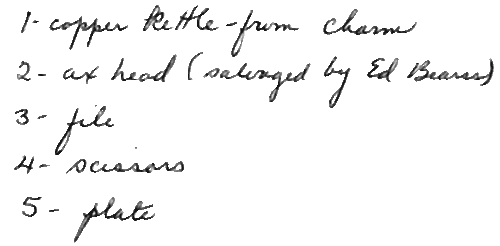 1- copper kettle - from charm
2- ax head (salvaged by Ed Bearss)
3- file
4- scissors
5- plate